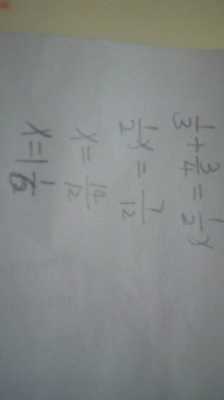 1/3 + 3/4 = 1/2 x
1/2 x = 7/12
x = 14/12
x = 1 1/6